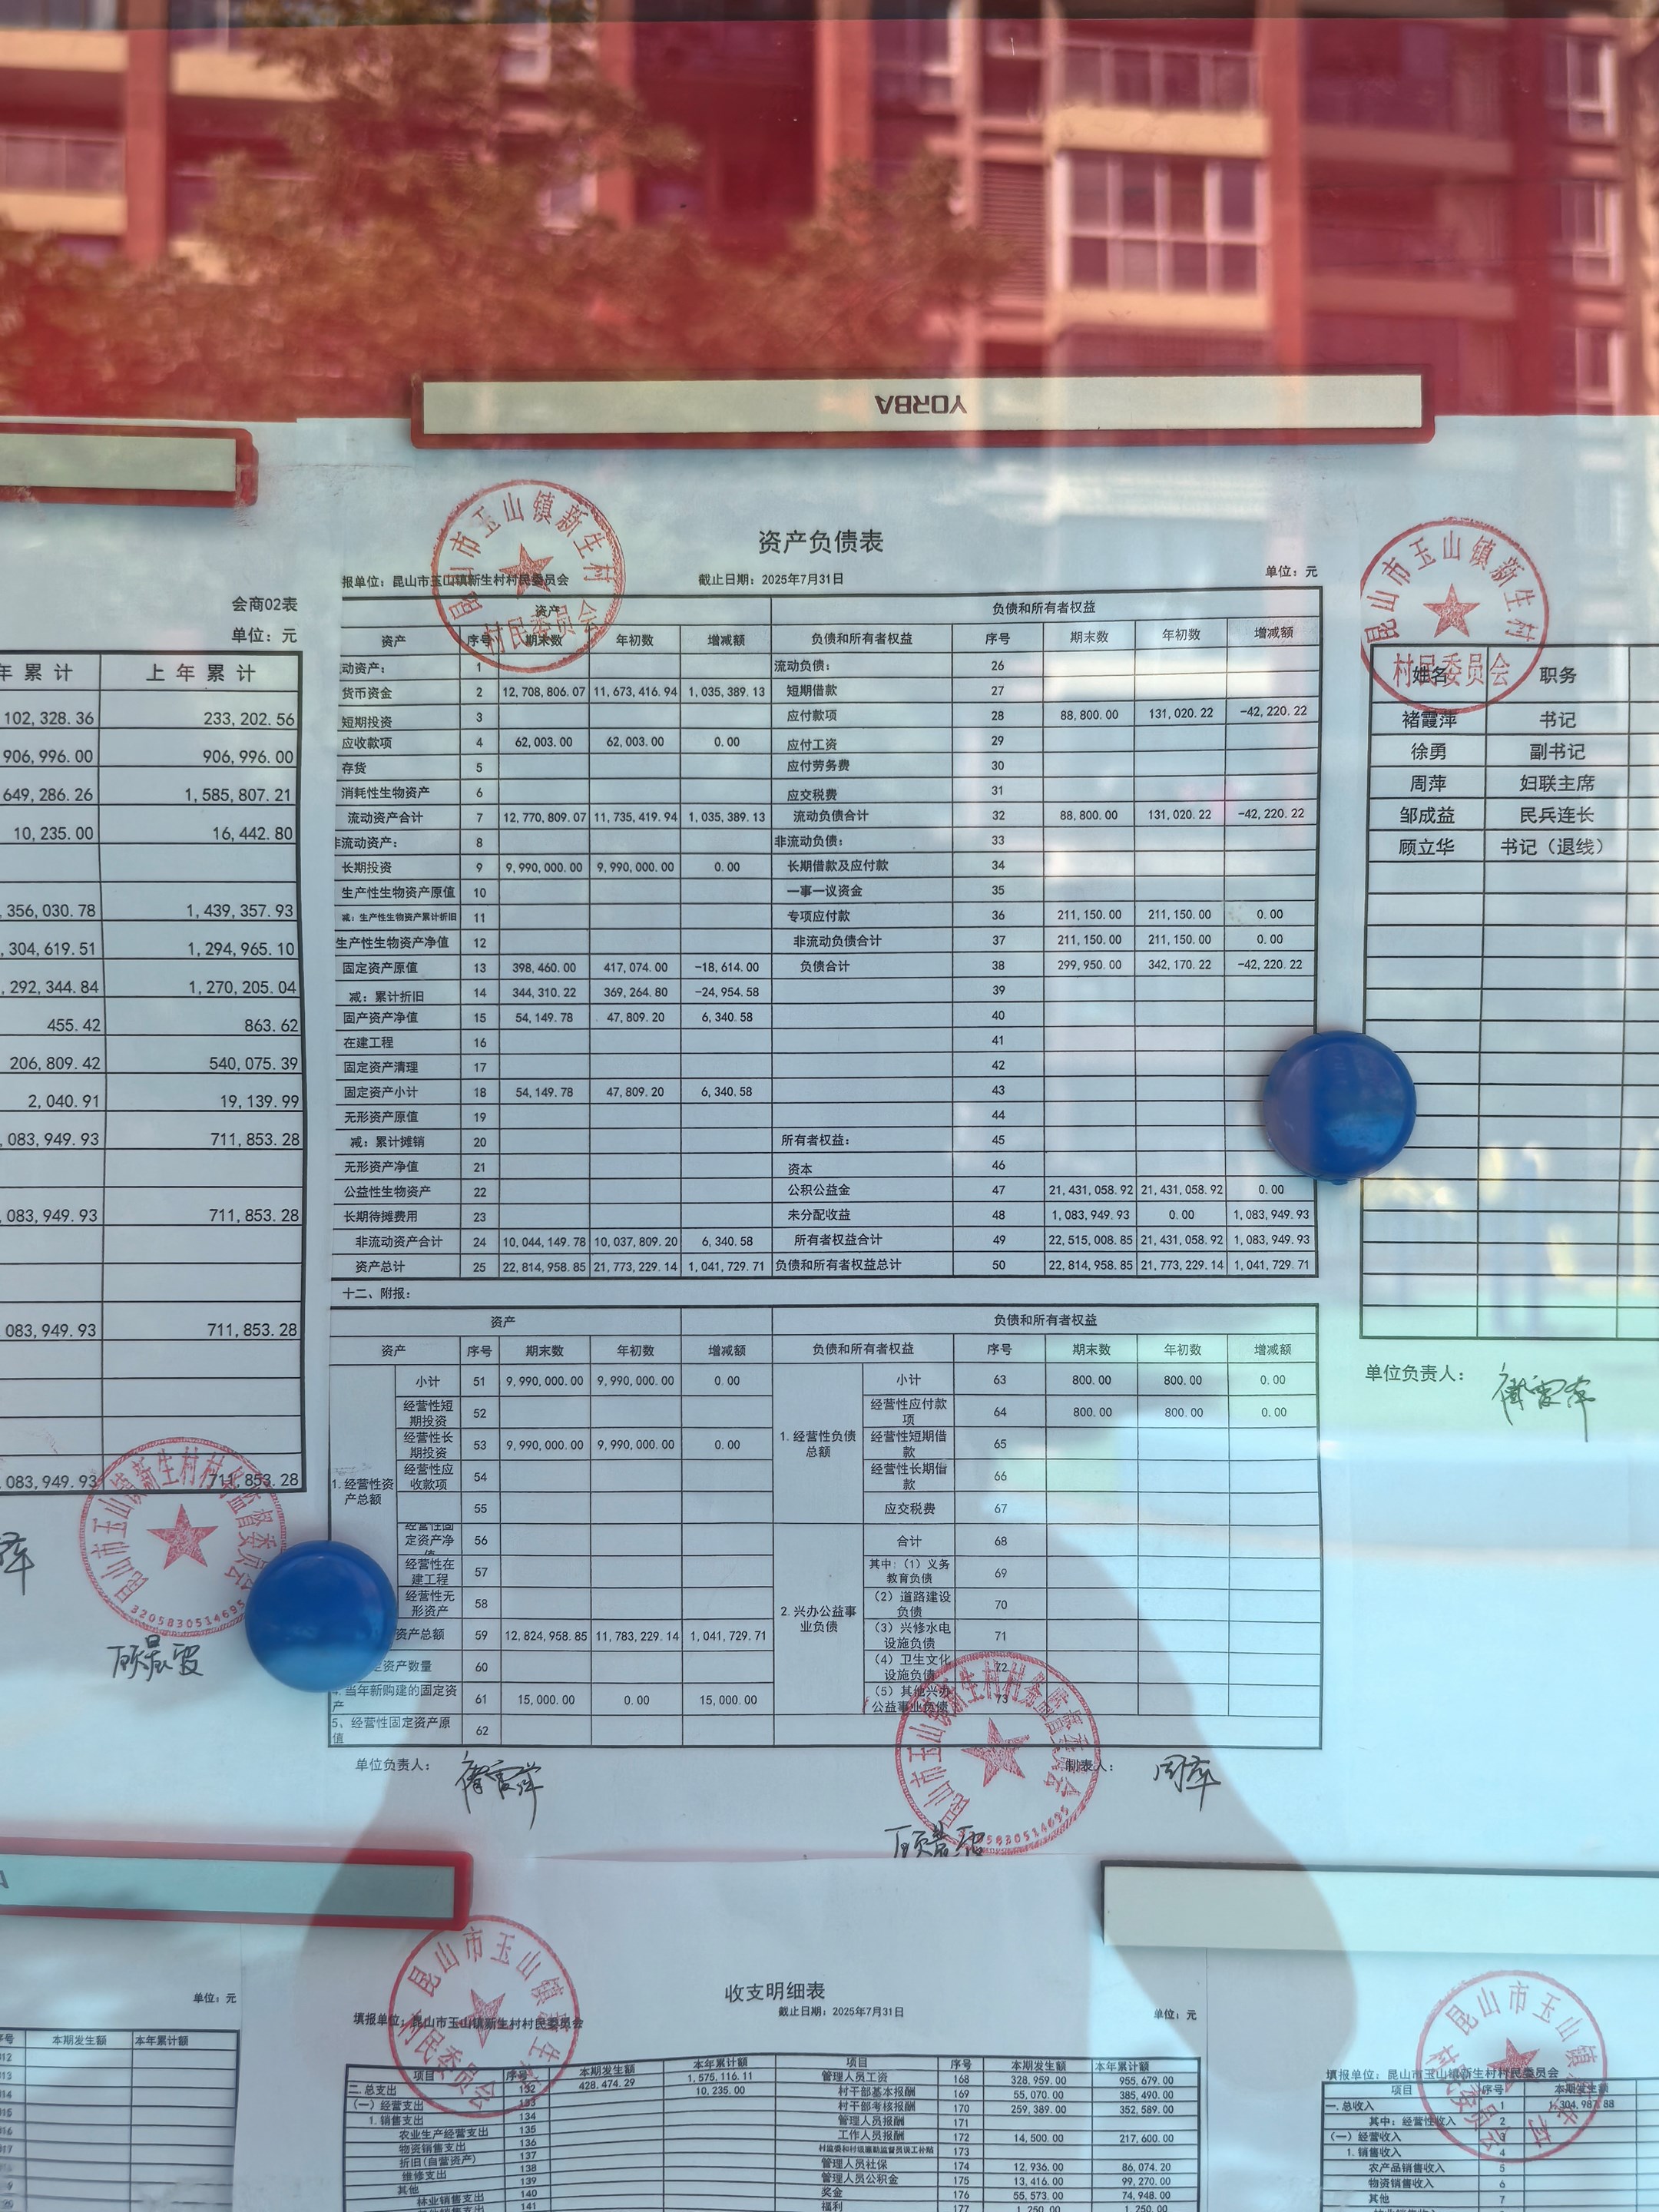 YORBA
会商02表
单位：元
年 累 计 上 年 累 计
102,328.36 233,202.56
906,996.00 906,996.00
649,286.26 1,585,807.21
10,235.00 16,442.80
356,030.78 1,439,357.93
,304,619.51 1,294,965.10
,292,344.84 1,270,205.04
455.42 863.62
206,809.42 540,075.39
2,040.91 19,139.99
,083,949.93 711,853.28
,083,949.93 711,853.28
083,949.93 711,853.28
083,949.93 711,853.28
昆山市玉山镇新生村村务监督委员会
3205830514695
昆山市玉山镇新生村
村民委员会
资产负债表
报单位：昆山市玉山镇新生村村民委员会 截止日期：2025年7月31日 单位：元
资产 负债和所有者权益
资产 序号 期末数 年初数 增减额 负债和所有者权益 序号 期末数 年初数 增减额
动资产： 1 流动负债： 26
货币资金 2 12,708,806.07 11,673,416.94 1,035,389.13 短期借款 27
短期投资 3 应付款项 28 88,800.00 131,020.22 -42,220.22
应收款项 4 62,003.00 62,003.00 0.00 应付工资 29
存货 5 应付劳务费 30
消耗性生物资产 6 应交税费 31
流动资产合计 7 12,770,809.07 11,735,419.94 1,035,389.13 流动负债合计 32 88,800.00 131,020.22 -42,220.22
非流动资产： 8 非流动负债： 33
长期投资 9 9,990,000.00 9,990,000.00 0.00 长期借款及应付款 34
生产性生物资产原值 10 一事一议资金 35
减：生产性生物资产累计折旧 11 专项应付款 36 211,150.00 211,150.00 0.00
生产性生物资产净值 12 非流动负债合计 37 211,150.00 211,150.00 0.00
固定资产原值 13 398,460.00 417,074.00 -18,614.00 负债合计 38 299,950.00 342,170.22 -42,220.22
减：累计折旧 14 344,310.22 369,264.80 -24,954.58 39
固产资产净值 15 54,149.78 47,809.20 6,340.58 40
在建工程 16 41
固定资产清理 17 42
固定资产小计 18 54,149.78 47,809.20 6,340.58 43
无形资产原值 19 44
减：累计摊销 20 所有者权益： 45
无形资产净值 21 资本 46
公益性生物资产 22 公积公益金 47 21,431,058.92 21,431,058.92 0.00
长期待摊费用 23 未分配收益 48 1,083,949.93 0.00 1,083,949.93
非流动资产合计 24 10,044,149.78 10,037,809.20 6,340.58 所有者权益合计 49 22,515,008.85 21,431,058.92 1,083,949.93
资产总计 25 22,814,958.85 21,773,229.14 1,041,729.71 负债和所有者权益总计 50 22,814,958.85 21,773,229.14 1,041,729.71
十二、附报：
资产 负债和所有者权益
资产 序号 期末数 年初数 增减额 负债和所有者权益 序号 期末数 年初数 增减额
1.经营性资产总额 小计 51 9,990,000.00 9,990,000.00 0.00 1.经营性负债总额 小计 63 800.00 800.00 0.00
经营性短期投资 52 经营性应付款项 64 800.00 800.00 0.00
经营性长期投资 53 9,990,000.00 9,990,000.00 0.00 经营性短期借款 65
经营性应收款项 54 经营性长期借款 66
55 应交税费 67
经营性固定资产净值 56 2.兴办公益事业负债 合计 68
经营性在建工程 57 其中：（1）义务教育负债 69
经营性无形资产 58 （2）道路建设负债 70
资产总额 59 12,824,958.85 11,783,229.14 1,041,729.71 （3）兴修水电设施负债 71
资产数量 60 （4）卫生文化设施负债 72
4.当年新购建的固定资产 61 15,000.00 0.00 15,000.00 （5）其他兴办公益事业负债 73
5、经营性固定资产原值 62
单位负责人： 褚霞萍 制表人： 周萍
昆山市玉山镇新生村村务监督委员会
3205830514695
昆山市玉山镇新生村
村民委员会
姓名 职务
褚霞萍 书记
徐勇 副书记
周萍 妇联主席
邹成益 民兵连长
顾立华 书记（退线）
单位负责人： 褚霞萍
单位：元
号 本期发生额 本年累计额
昆山市玉山镇新生
村民委员会
收支明细表
截止日期：2025年7月31日
填报单位：昆山市玉山镇新生村村民委员会 单位：元
项目 序号 本期发生额 本年累计额 项目 序号 本期发生额 本年累计额
二.总支出 132 428,474.29 1,575,116.11 管理人员工资 168 328,959.00 955,679.00
（一）经营支出 133 10,235.00 村干部基本报酬 169 55,070.00 385,490.00
1.销售支出 134 村干部考核报酬 170 259,389.00 352,589.00
农业生产经营支出 135 管理人员报酬 171
物资销售支出 136 工作人员报酬 172 14,500.00 217,600.00
折旧(自营资产) 137 村监委和村级廉勤监督员误工补贴 173
维修支出 138 管理人员社保 174 12,936.00 86,074.20
其他 139 管理人员公积金 175 13,416.00 99,270.00
林业销售支出 140 奖金 176 55,573.00 74,948.00
141 福利 177 1,250.00 1,250.00
昆山市玉山镇新生村
村民委员会
填报单位：昆山市玉山镇新生村村民委员会
项目 序号 本期发生额
一.总收入 1 1,304,987.88
其中：经营性收入 2
（一）经营收入 3
1.销售收入 4
农产品销售收入 5
物资销售收入 6
其他 7